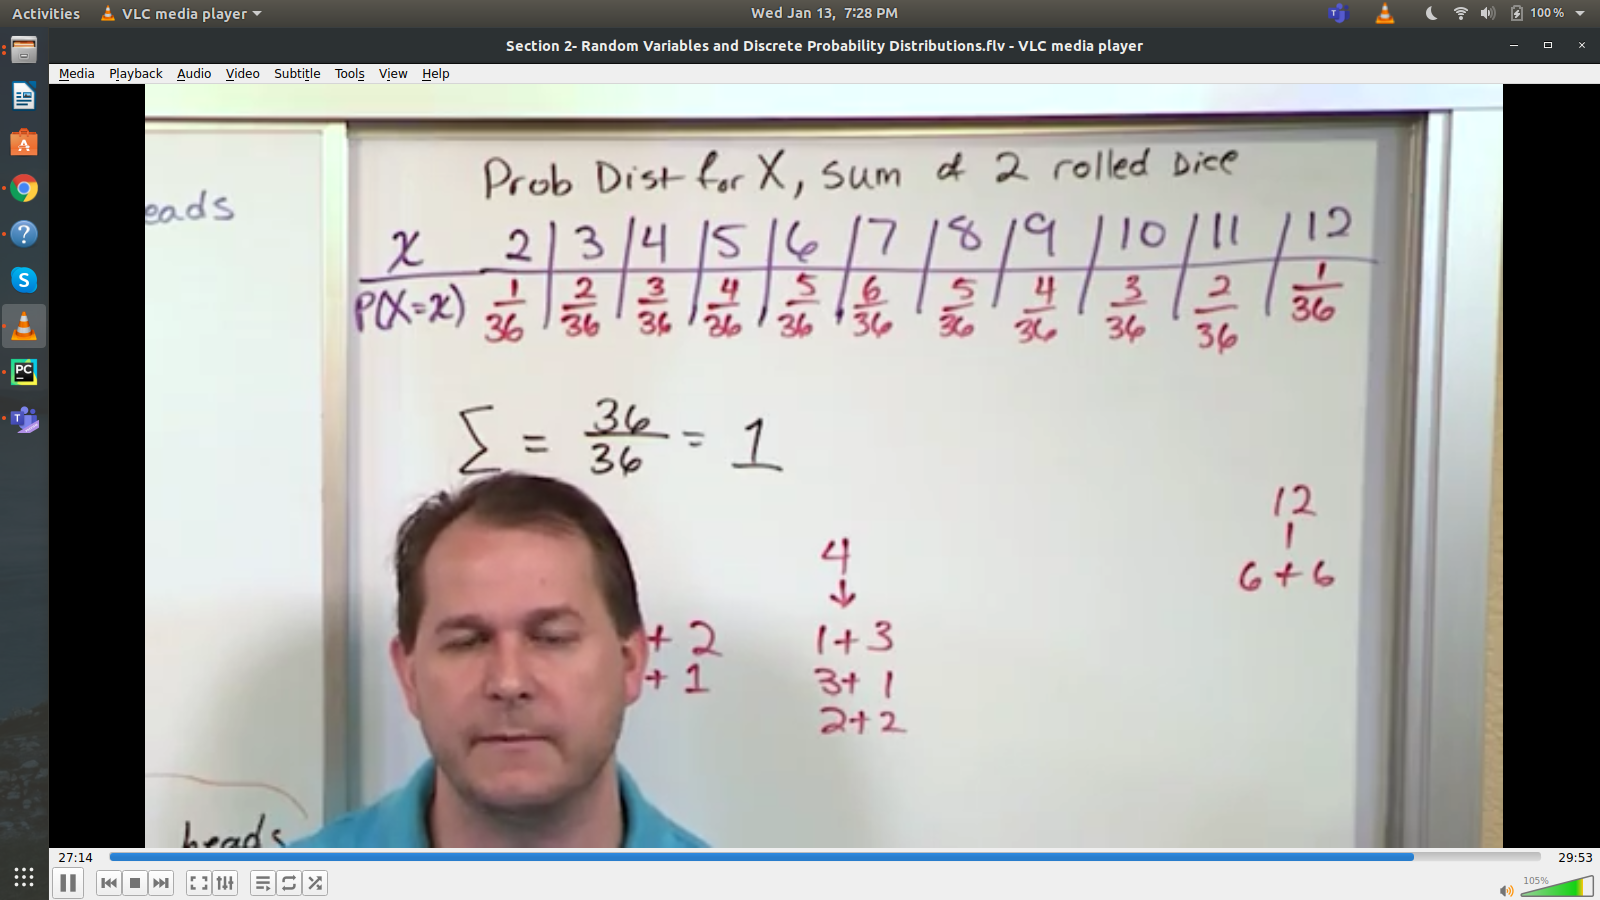 Activities VLC media player Wed Jan 13, 7:28 PM 100 %
Section 2- Random Variables and Discrete Probability Distributions.flv - VLC media player
Media Playback Audio Video Subtitle Tools View Help
Prob Dist for X, sum of 2 rolled Dice
eads
x 2 3 4 5 6 7 8 9 10 11 12
P(X=x) 1/36 2/36 3/36 4/36 5/36 6/36 5/36 4/36 3/36 2/36 1/36
Σ = 36/36 = 1
12
6 + 6
4
+ 2 1 + 3
+ 1 3 + 1
2 + 2
heads
PC
27:14 29:53
105%